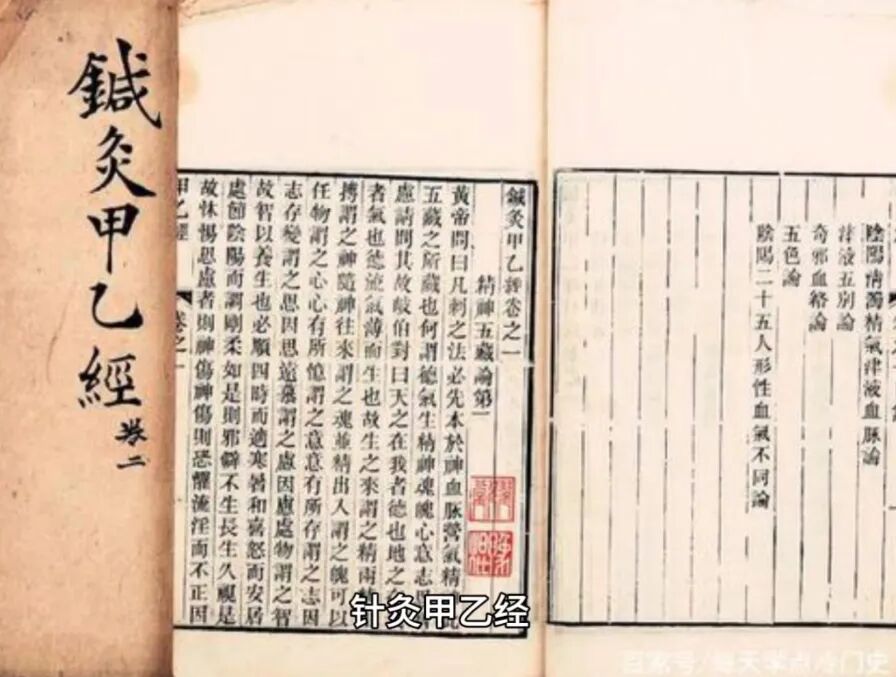 鍼灸甲乙經
卷二
陰陽清濁精氣津液血脈論
津液五別論
奇邪血絡論
五色論
陰陽二十五人形性血氣不同論
鍼灸甲乙經卷之一
精神五藏論第一
黃帝問曰凡刺之法必先本於神血脈營氣精
五藏之所藏也何謂德氣生精神魂魄心意志思
慮請問其故岐伯對曰天之在我者德也地之
者氣也德流氣薄而生也故生之來謂之精兩
搏謂之神隨神往來謂之魂並精出入謂之魄可以
任物謂之心心有所憶謂之意意有所存謂之志因
志存變謂之思因思遠慕謂之慮因慮處物謂之智
故智以養生也必順四時而適寒暑和喜怒而安居
處節陰陽而調剛柔如是則邪僻不生長生久視是
故怵惕思慮者則神傷神傷則恐懼流淫而不正因
甲乙經
卷之一
针灸甲乙经
百家号/每天学点冷门史